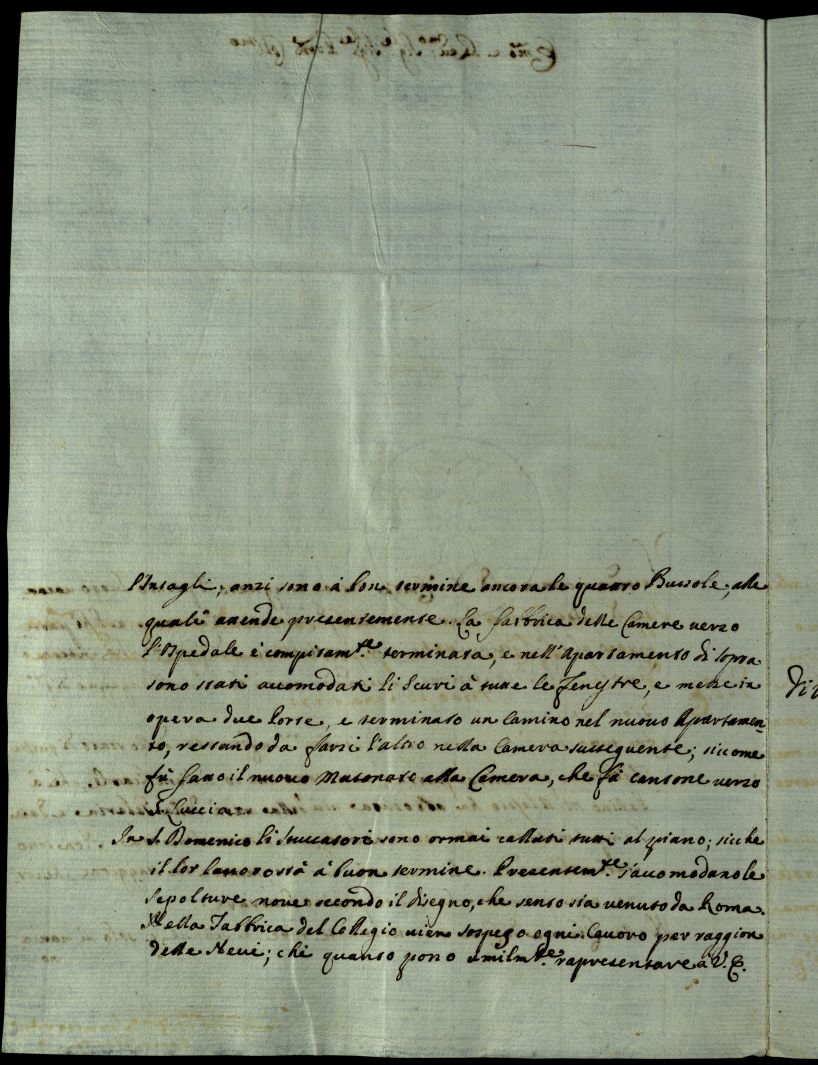 l'Intagli, anzi sono à bon termine ancora le quattro Bussole, alle
quali attende presentemente. La fabbrica delle Camere verso
l'Ospedale è compitam.te terminata, e nell'Apartamento di sopra
sono stati accomodati li Scuri à tutte le fenestre, e messe in
opera due Porte, e terminato un Camino nel nuovo Apartamen-
to, restando da farsi l'altro nella Camera susseguente; siccome
fù fatto il nuovo Matonato alla Camera, che fà cantone verso
S. Luccia.
In S. Domenico li Stuccatori sono ormai callati tutti al piano; sicche
il lor lavoro stà à buon termine. Presentem.te s'accomodano le
Sepolture nove secondo il disegno, che sento sia venuto da Roma.
Nella Fabbrica del Collegio vien sospeso ogni Lavoro per raggion
delle Nevi; chè quanto posso umilm.te rapresentare à V. E.